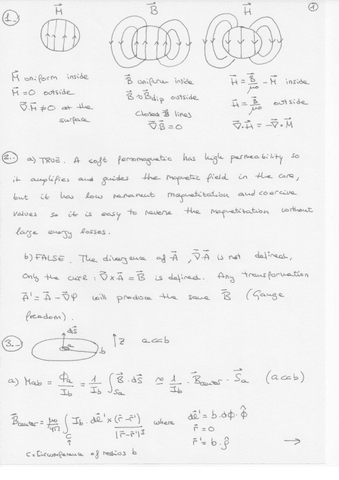 1.- M⃗ B⃗ H⃗ ①
M⃗ uniform inside
M⃗ = 0 outside
∇⃗·M⃗ ≠ 0 at the
surface
B⃗ uniform inside
B⃗ ≈ B⃗dip outside
Closed B⃗ lines
∇⃗·B⃗ = 0
H⃗ = B⃗/μ₀ - M⃗ inside
H⃗ = B⃗/μ₀ outside
∇⃗·H⃗ = -∇⃗·M⃗
2.- a) TRUE. A soft ferromagnetic has high permeability so
it amplifies and guides the magnetic field in the core,
but it has low remanent magnetization and coercive
values so it is easy to reverse the magnetization without
large energy losses.
b) FALSE. The divergence of A⃗, ∇⃗·A⃗ is not defined,
Only the curl: ∇⃗×A⃗ = B⃗ is defined. Any transformation
A⃗' = A⃗ - ∇⃗φ will produce the same B⃗ (Gauge
freedom).
3.- dS⃗ a b z a<<b
a) Mab = Φa/Ib = 1/Ib ∫Sa B⃗·dS⃗ ≈ 1/Ib · B⃗center · S⃗a (a<<b)
B⃗center = μ₀/4π ∫C Ib·dl⃗'×(r⃗-r⃗')/|r⃗-r⃗'|³ where
dl⃗' = b·dφ·φ̂
r⃗ = 0
r⃗' = b·ρ̂
C: Circumference of radius b →